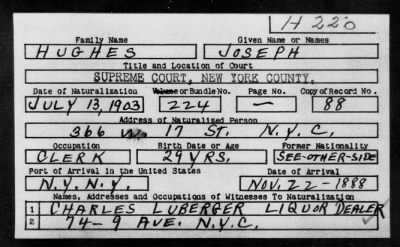 H 220
Family Name Given Name or Names
HUGHES JOSEPH
Title and Location of Court
SUPREME COURT, NEW YORK COUNTY.
Date of Naturalization Volume or Bundle No. Page No. Copy of Record No.
JULY 13, 1903 224 — 88
Address of Naturalized Person
366 W. 17 ST. N.Y.C.
Occupation Birth Date or Age Former Nationality
CLERK 29 YRS. SEE-OTHER-SIDE
Port of Arrival in the United States Date of Arrival
N.Y. N.Y. NOV. 22-1888
Names, Addresses and Occupations of Witnesses To Naturalization
1 CHARLES LUBERGER LIQUOR DEALER
2 74-9 AVE. N.Y.C.